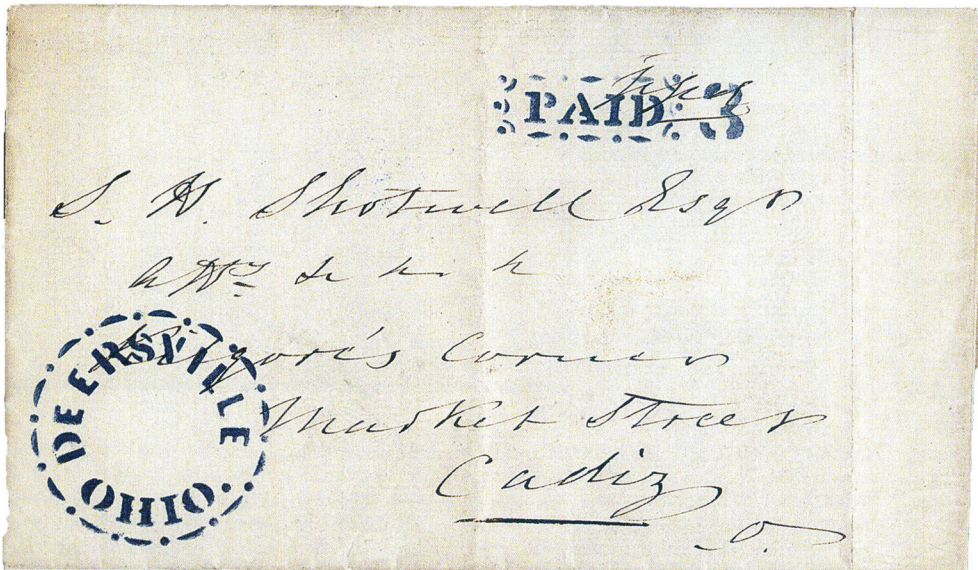 PAID 3
S. H. Shotwell Esqr
Atty
Kilgore's Corner
Market Street
Cadiz
O.
DEERSVILLE
OHIO